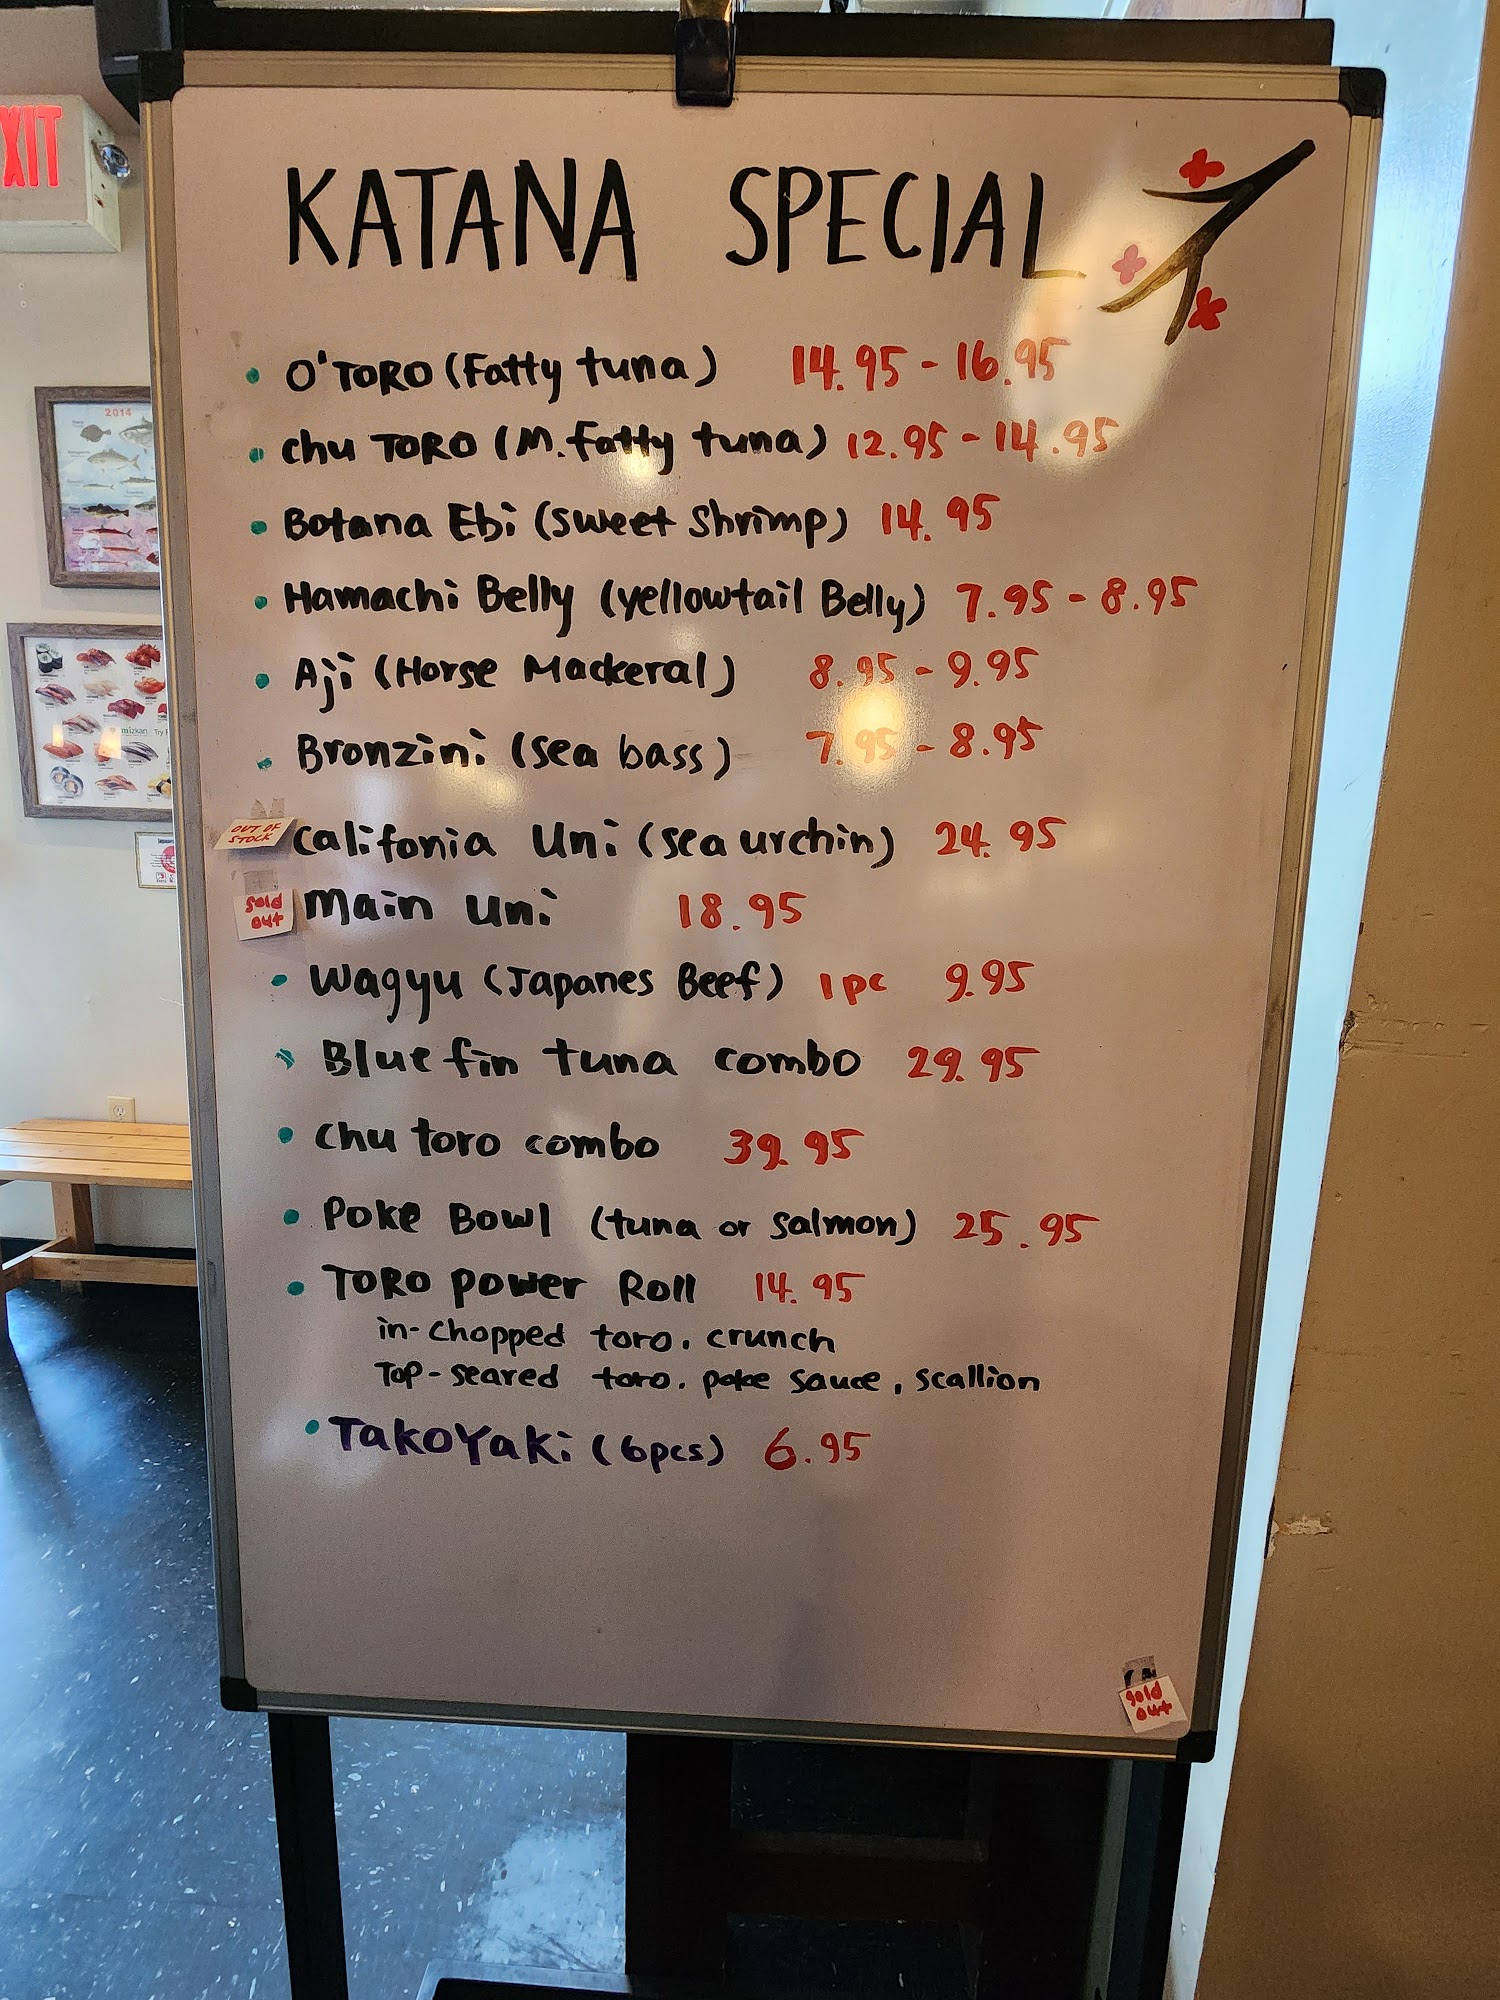 EXIT
KATANA SPECIAL
O'TORO (Fatty tuna) 14.95 - 16.95
chu TORO (M. fatty tuna) 12.95 - 14.95
Botana Ebi (sweet shrimp) 14.95
Hamachi Belly (yellowtail Belly) 7.95 - 8.95
Aji (Horse Mackeral) 8.95 - 9.95
Bronzini (sea bass) 7.95 - 8.95
OUT OF
STOCK
Califonia Uni (sea urchin) 24.95
Sold
out
Main uni 18.95
Wagyu (Japanes Beef) 1pc 9.95
Blue fin tuna combo 29.95
Chu toro combo 39.95
Poke Bowl (tuna or salmon) 25.95
TORO Power Roll 14.95
in-chopped toro. crunch
Top-seared toro. poke sauce, scallion
TakoYaki (6pcs) 6.95
Sold
out
2014
mizkan